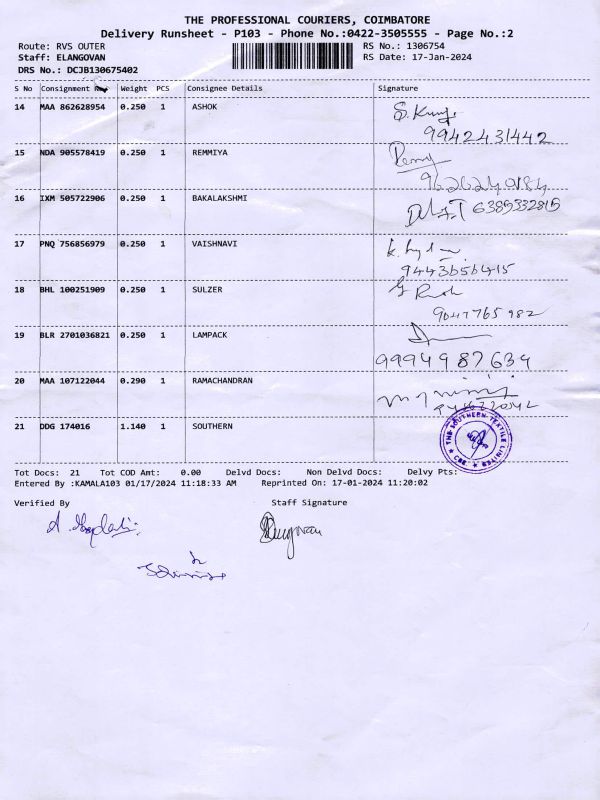 THE PROFESSIONAL COURIERS, COIMBATORE
Delivery Runsheet - P103 - Phone No.:0422-3505555 - Page No.:2
Route: RVS OUTER RS No.: 1306754
Staff: ELANGOVAN RS Date: 17-Jan-2024
DRS No.: DCJB130675402
S No Consignment Weight PCS Consignee Details Signature
14 MAA 862628954 0.250 1 ASHOK
9942431442
15 NDA 905578419 0.250 1 REMMIYA
9626240184
16 IXM 505722906 0.250 1 BAKALAKSHMI 6385332815
17 PNQ 756856979 0.250 1 VAISHNAVI
9443656415
18 BHL 100251909 0.250 1 SULZER
9047765982
19 BLR 2701036821 0.250 1 LAMPACK
9994987634
20 MAA 107122044 0.290 1 RAMACHANDRAN
21 DDG 174016 1.140 1 SOUTHERN
Tot Docs: 21 Tot COD Amt: 0.00 Delvd Docs: Non Delvd Docs: Delvy Pts:
Entered By :KAMALA103 01/17/2024 11:18:33 AM Reprinted On: 17-01-2024 11:20:02
Verified By Staff Signature